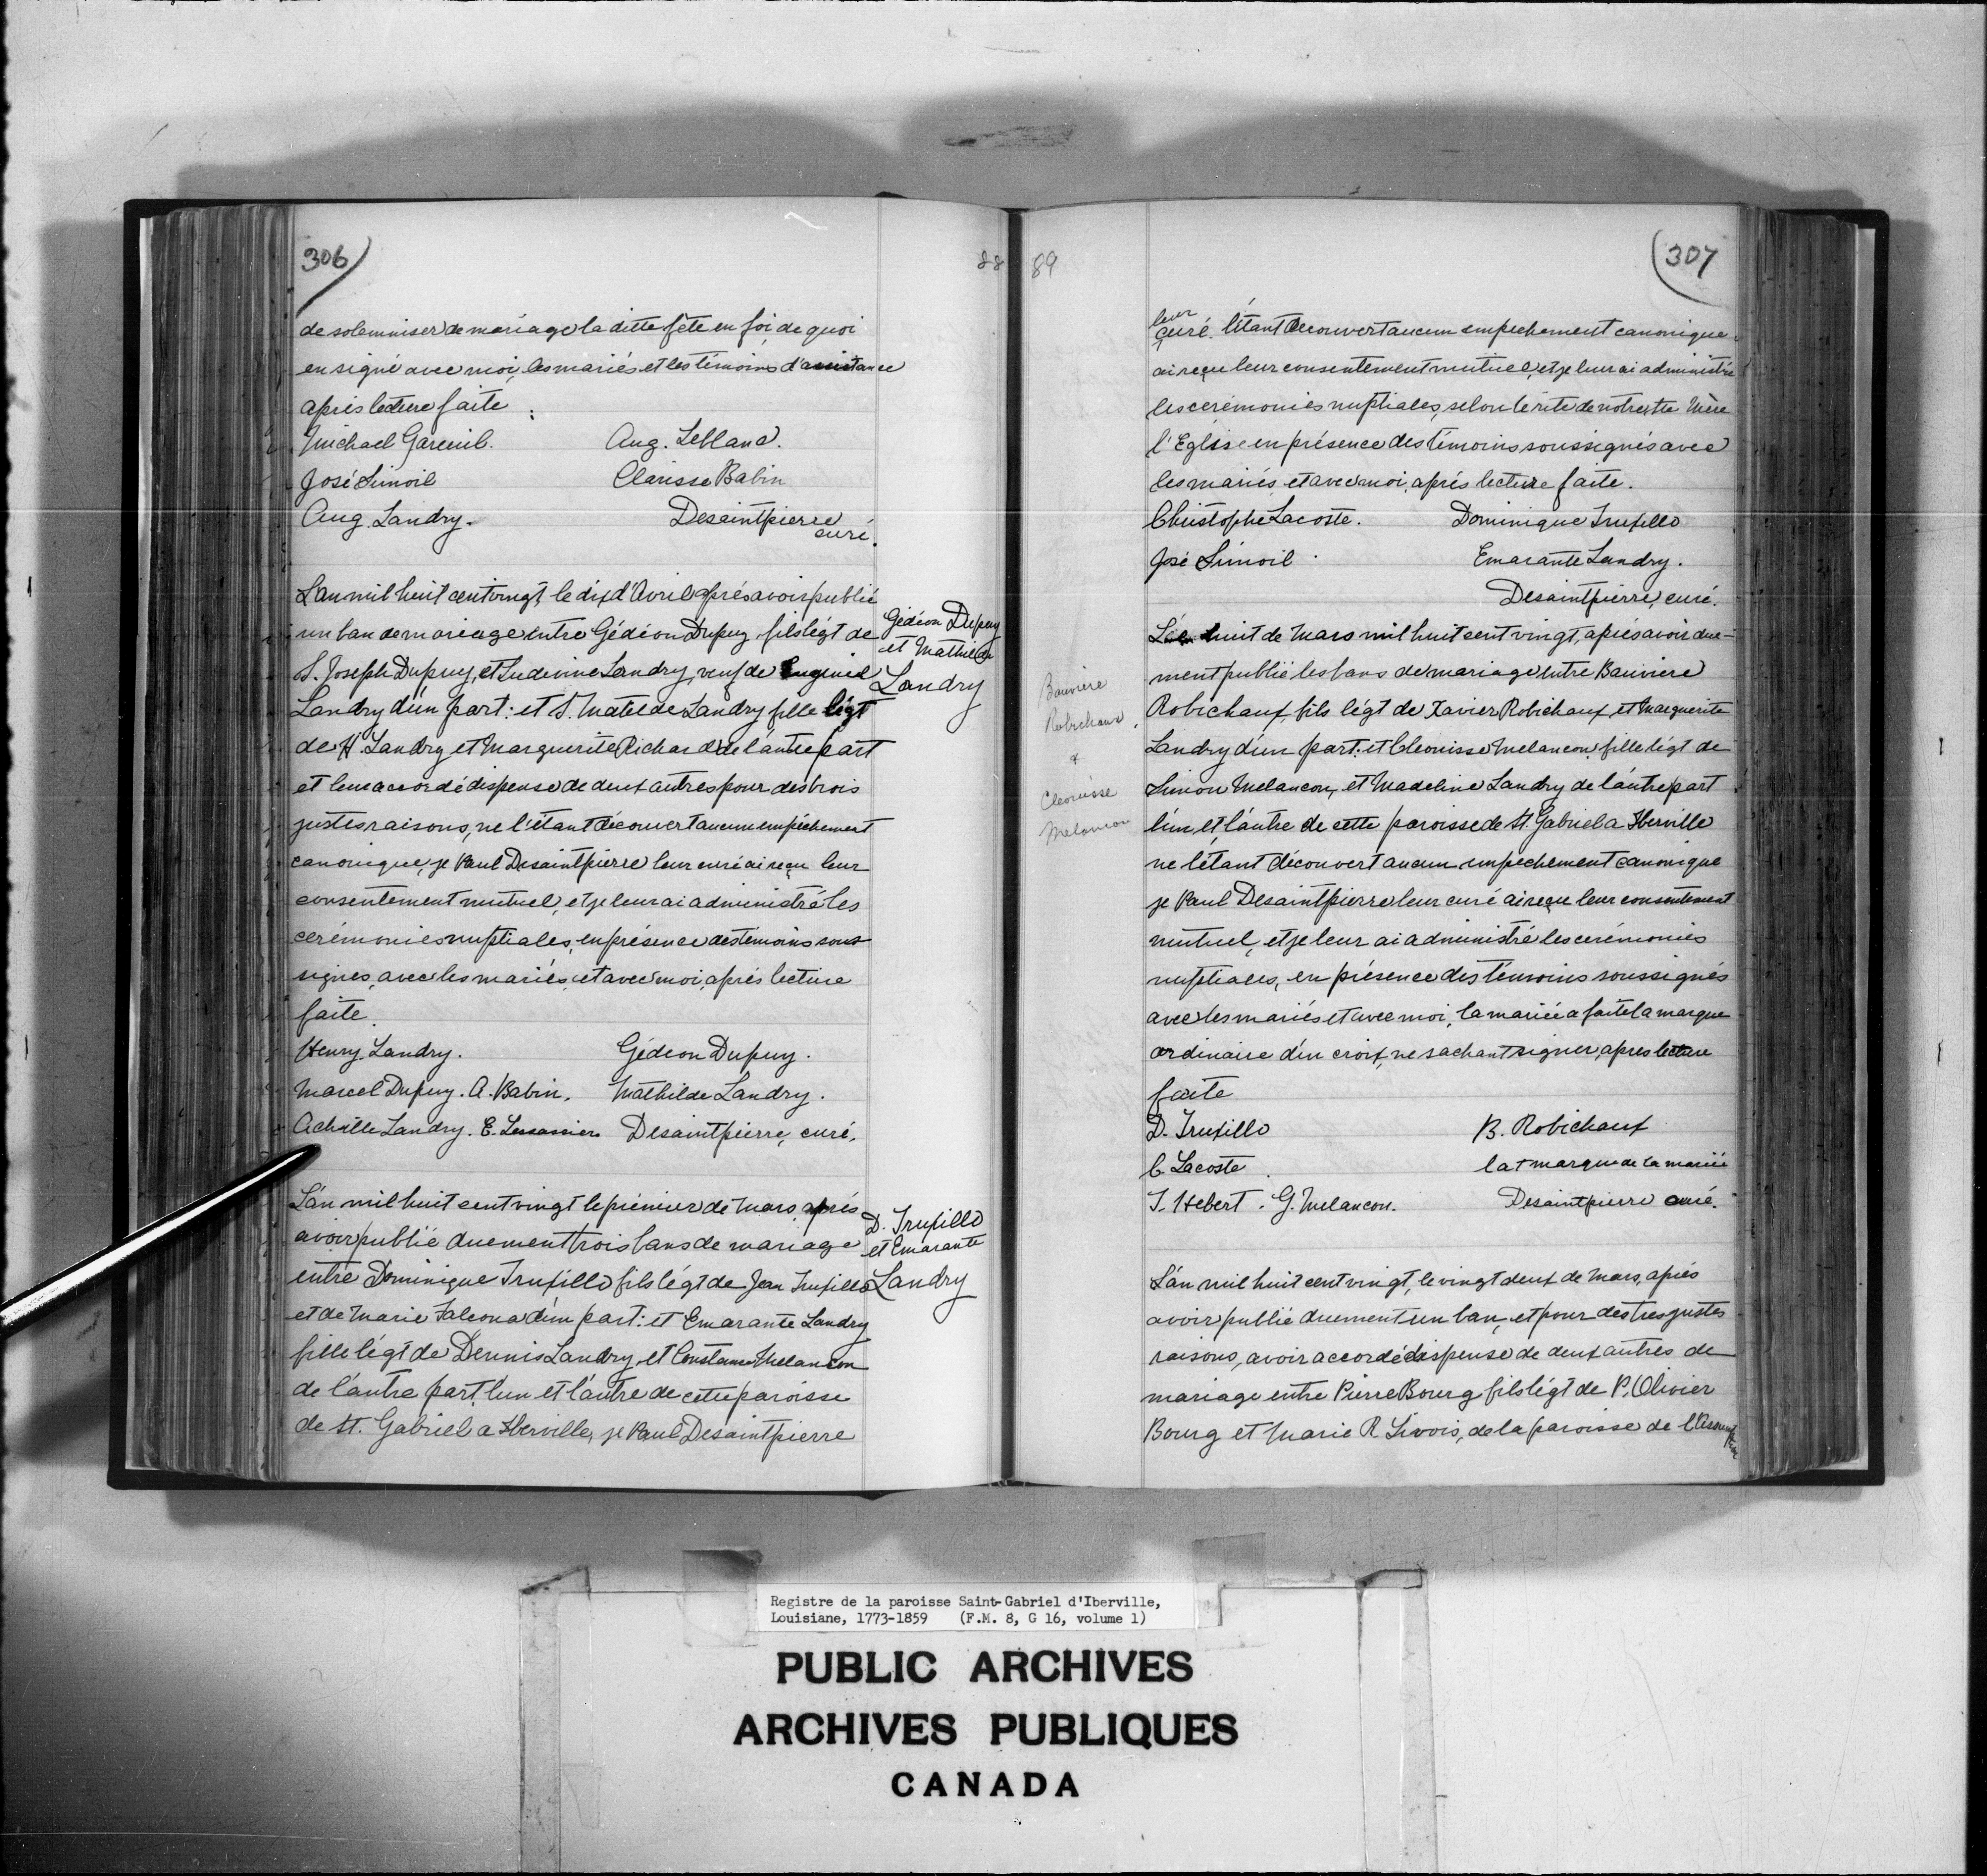 306
88
de solemniser de mariage la ditte fête en foi de quoi
en signé avec moi, les mariés et les témoins d'assistance
après lecture faite
Michael Gareuil. Aug. Leblanc.
José Simoil Clarisse Babin
Aug. Landry. Desaintpierre
curé.
L'an mil huit cent vingt, le dix d'Avril après avoir publié
un ban de mariage entre Gédéon Dupuy, fils légt de
S. Joseph Dupuy, et Ludivine Landry, veuf de Eugenie
Landry d'un part: et S. Matelde Landry fille légt
de H. Landry et Marguerite Richard de l'autre part
et leur accordé dispense de deux autres pour des trois
justes raisons, ne l'étant découvert aucun empêchement
canonique, je Paul Desaintpierre leur curé ai reçu leur
consentement mutuel, et je leur ai administré les
cerémonies nuptiales, en présence des temoins sous
signes, avec les mariés, et avec moi, après lecture
faite.
Gédéon Dupuy
et Mathilde
Landry
Henry Landry. Gédeon Dupuy.
Marcel Dupuy. A. Babin. Mathilde Landry.
Achille Landry. E. Lessassier Desaintpierre, curé.
L'an mil huit cent vingt le prémier de Mars, après
avoir publié duement trois bans de mariage
entre Dominique Truxillo fils légt de Jean Truxillo
et de Marie Falcona d'un part: et Emarante Landry
fille légt de Dennis Landry, et Constance Melancon
de l'autre part, l'un et l'autre de cette paroisse
de St. Gabriel a Iberville, je Paul Desaintpierre
D. Truxillo
et Emarante
Landry
89
307
leur
curé. l'étant decouvert aucun empechement canonique
ai reçu leur consentement mutuel, et je leur ai administré
les cerémonies nuptiales, selon le rite de notre ste Mère
l'Eglise en présence des témoins soussignés avec
les mariés, et avec moi, après lecture faite.
Christophe Lacoste. Dominique Truxillo
José Simoil Emarante Landry.
Desaintpierre, curé.
Le huit de Mars mil huit cent vingt, après avoir due-
ment publié les bans de mariage entre Bauviere
Robichaux, fils légt de Xavier Robichaux, et Marguerite
Landry d'un part: et Cleonisse Melancon, fille légt de
Simon Melancon, et Madeline Landry de l'autre part
l'un, et l'autre de cette paroisse de St. Gabriel a Iberville
ne l'étant découvert aucun empechement canonique
je Paul Desaintpierre leur curé ai reçu leur consentement
mutuel, et je leur ai administré les cerémonies
nuptiales, en présence des témoins soussignés
avec les mariés et avec moi, la mariée a faite la marque
ordinaire d'un croix, ne sachant signer, apres lecture
faite
Bauviere
Robichaux
&
Cleonisse
Melancon
D. Truxillo B. Robichaux
C. Lacoste la + marque de la mariée
J. Hebert. G. Melancon. Desaintpierre curé.
L'an mil huit cent vingt, le vingt deux de Mars, après
avoir publié duement un ban, et pour des tres justes
raisons, avoir accordé dispense de deux autres de
mariage entre Pierre Bourg fils légt de P. Olivier
Bourg et Marie R. Livois, de la paroisse de l'Assumption
Registre de la paroisse Saint-Gabriel d'Iberville,
Louisiane, 1773-1859 (F.M. 8, G 16, volume 1)
PUBLIC ARCHIVES
ARCHIVES PUBLIQUES
CANADA